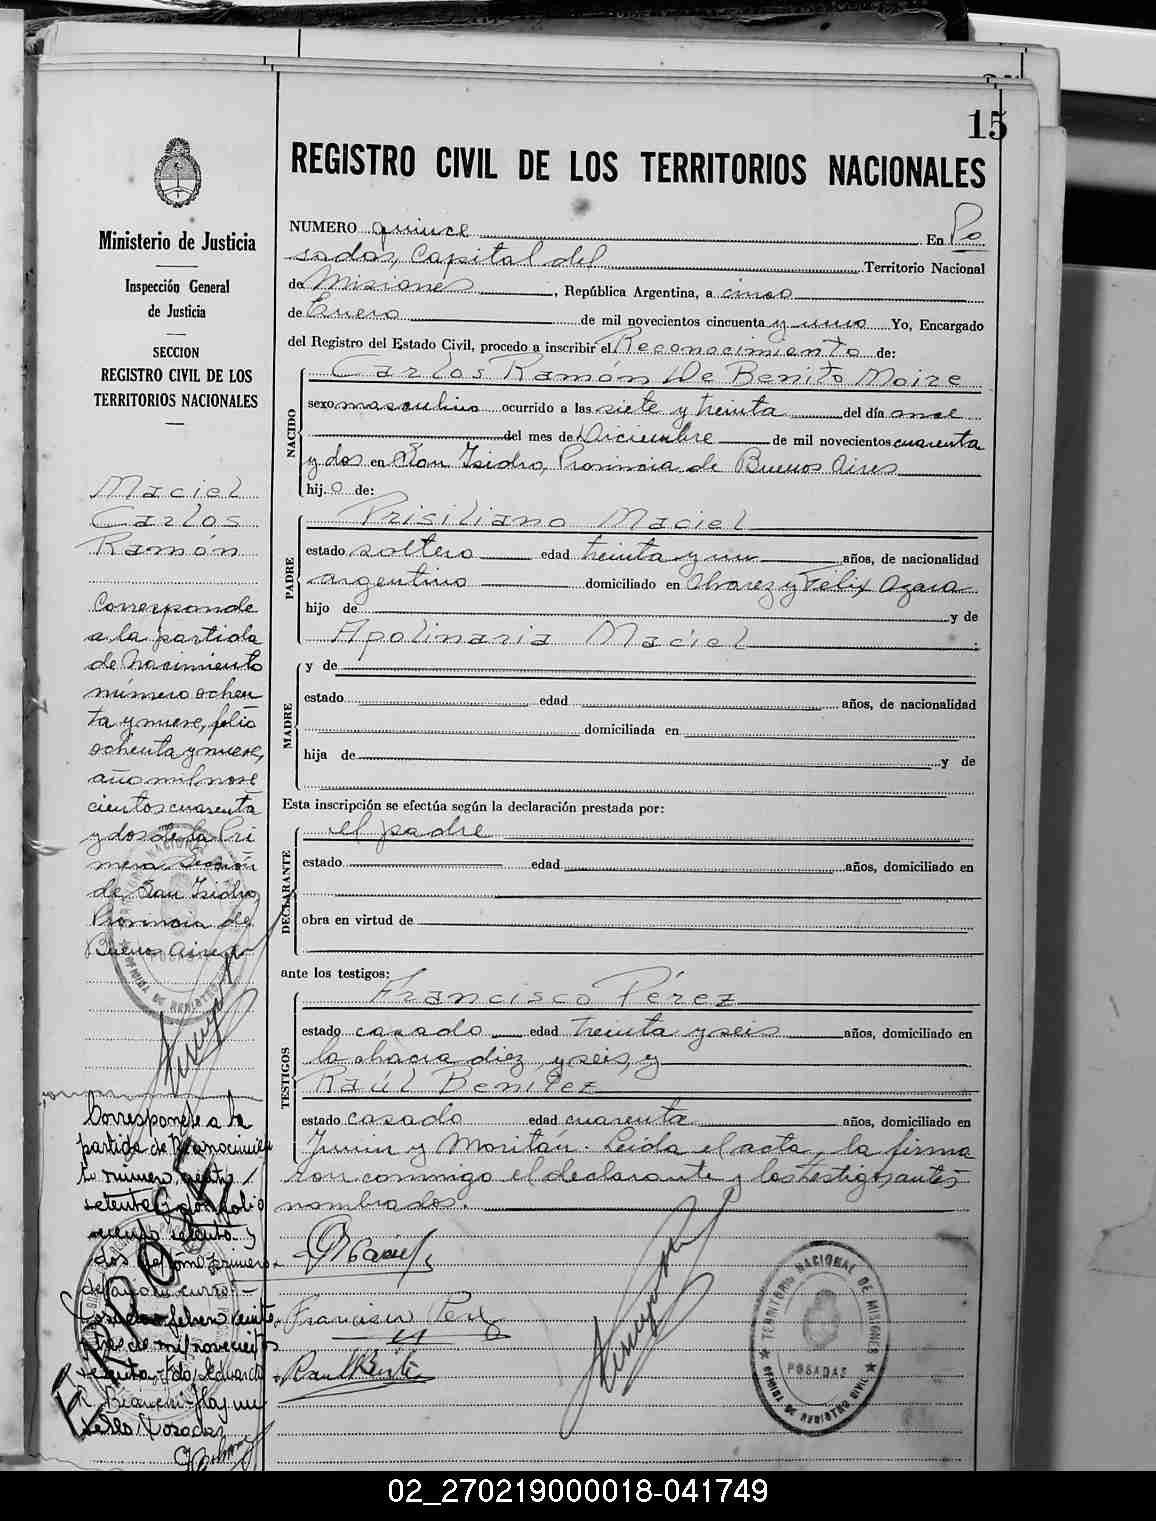 15
REGISTRO CIVIL DE LOS TERRITORIOS NACIONALES
Ministerio de Justicia
Inspección General
de Justicia
SECCION
REGISTRO CIVIL DE LOS
TERRITORIOS NACIONALES
Maciel
Carlos
Ramón
Corresponde
a la partida
de Nacimiento
número ochen
ta y nueve, folio
ochenta y nueve,
año mil nove
cientos cuarenta
y dos de la Pri
mera Sección
de San Isidro,
Provincia de
Buenos Aires
Corresponde a la
partida de
to número
setenta y dos, folio
setenta y
dos del tomo primero
del año en curso.-
febrero veinte
de mil novecientos
setenta. Fdo. Eduardo
Bianchi - Hay un
sello Posadas
ERROSE
NUMERO quince En Po
sadas, Capital del Territorio Nacional
de Misiones, República Argentina, a cinco
de Enero de mil novecientos cincuenta y uno Yo, Encargado
del Registro del Estado Civil, procedo a inscribir el Reconocimiento de:
NACIDO
Carlos Ramón De Benito Moire
sexo masculino ocurrido a las siete y treinta del día once
del mes de Diciembre de mil novecientos cuarenta
y dos en San Isidro, Provincia de Buenos Aires
hij.o de:
PADRE
Prisiliano Maciel
estado soltero edad treinta y un años, de nacionalidad
argentino domiciliado en Chavez y Felix Azara
hijo de y de
Apolinaria Maciel
MADRE
y de
estado edad años, de nacionalidad
domiciliada en
hija de y de
Esta inscripción se efectúa según la declaración prestada por:
DECLARANTE
el padre
estado edad años, domiciliado en
obra en virtud de
ante los testigos:
TESTIGOS
Francisco Pérez
estado casado edad treinta y seis años, domiciliado en
la chacra diez y seis, y
Raúl Benitez
estado casado edad cuarenta años, domiciliado en
Junin y Moritán. Leida el acta, la firma
ron conmigo el declarante y los testigos antes
nombrados.
PMaciel
Francisco Perez
Raul Benitez
TERRITORIO NACIONAL DE MISIONES
POSADAS
OFICINA DE REGISTRO CIVIL
02_270219000018-041749